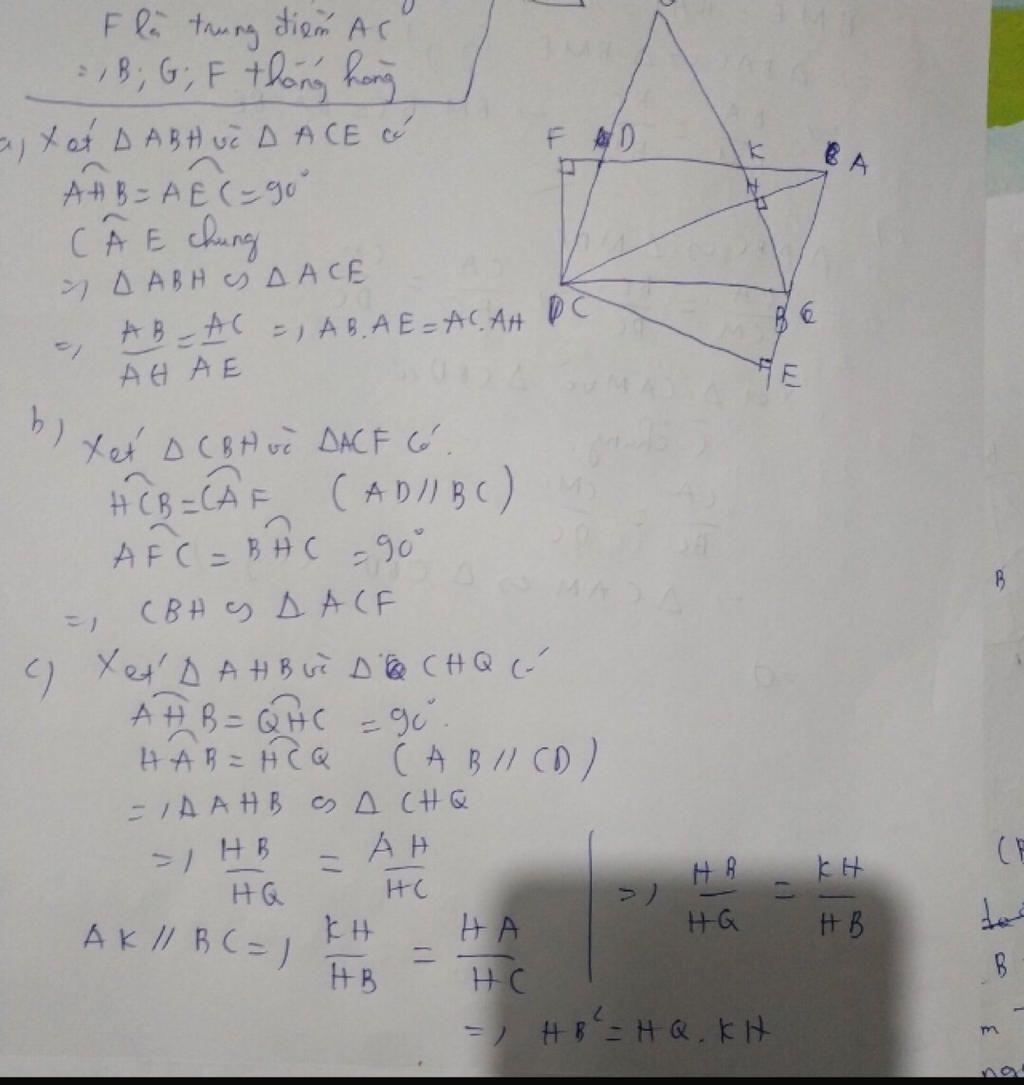 F là trung điểm AC
=> B; G; F thẳng hàng
a) Xét Δ ABH và Δ ACE có
AHB = AEC = 90°
CAE chung
=> Δ ABH ∽ Δ ACE
=> AB/AH = AC/AE => AB.AE = AC.AH
b) Xét Δ CBH và ΔACF có.
HCB = CAF (AD // BC)
AFC = BHC = 90°
=> CBH ∽ Δ ACF
c) Xét Δ AHB và Δ CHQ có
AHB = QHC = 90°.
HAB = HCQ (AB // CD)
=> Δ AHB ∽ Δ CHQ
=> HB/HQ = AH/HC
AK // BC => KH/HB = HA/HC
=> HB/HQ = KH/HB
=> HB² = HQ.KH
F D K A
H
C B
E